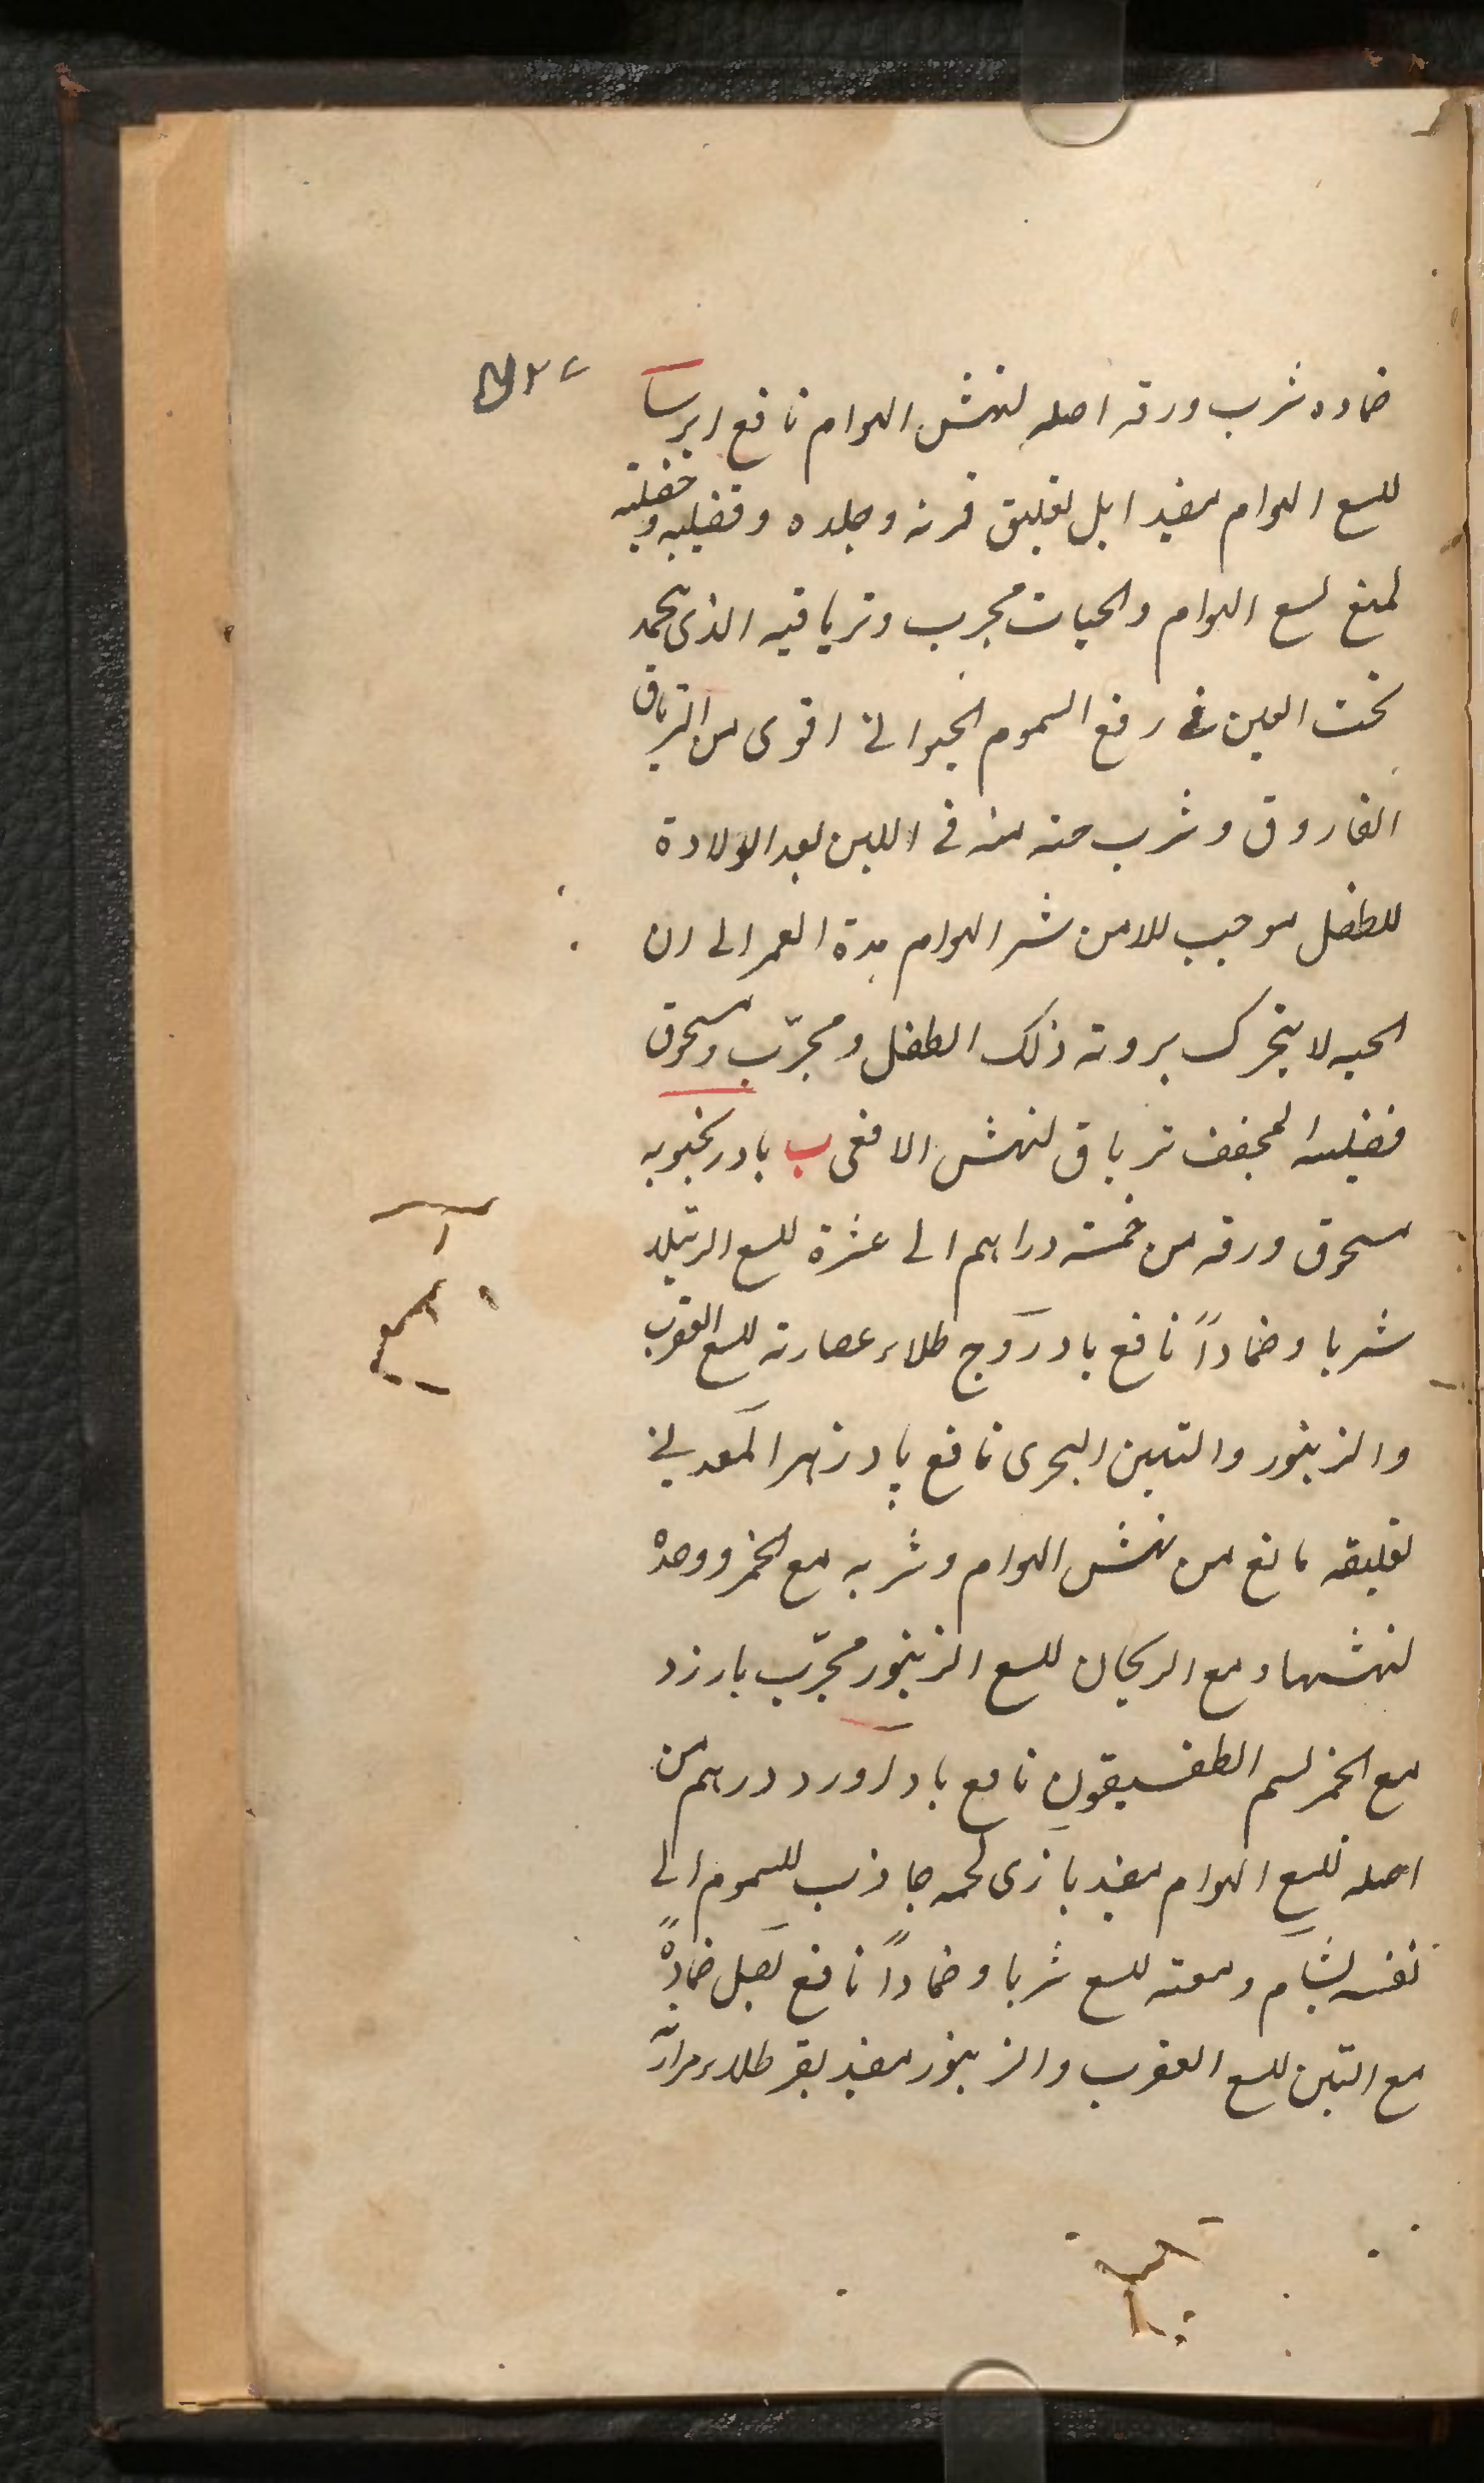 ضماده شرب ورقه اصله لنهش الهوام نافع ايرسا
للسع الهوام مفيد ايل تعليق قرنه وجلده وقضيبه و
لمنع لسع الهوام والحيات مجرب وترياقيه الذى يجمد
تحت العين فى رفع السموم الحيوانى اقوى من الترياق
الفاروق وشرب منه فى اللبن بعد الولادة
للطفل موجب للامن شر الهوام مدة العمر الى ان
الحيه لا يتحرك برويه ذلك الطفل ومجرّب ومسحوق
قضيبه المجفف ترياق لنهش الافعى ب بادرنجبويه
مسحوق ورقه من خمسة دراهم الى عشرة للسع الرتيلا
شربا وضماداً نافع بادروج طلاء عصارته للسع العقرب
والزنبور والتنين البحرى نافع پادزهر المعدنى
تعليقه مانع من نهش الهوام وشربه مع الخمر ووحده
لنهشها ومع الريحان للسع الزنبور مجرّب بارزد
مع الخمر لسم الطفسيقون نافع بادآورد درهم من
اصله للسع الهوام مفيد بازى لحمه جاذب للسموم الى
نفسه بشام للسع شربا وضماداً نافع بصل ضماداً
مع التين للسع العقرب والزنبور مفيد بقر طلاء مرارته